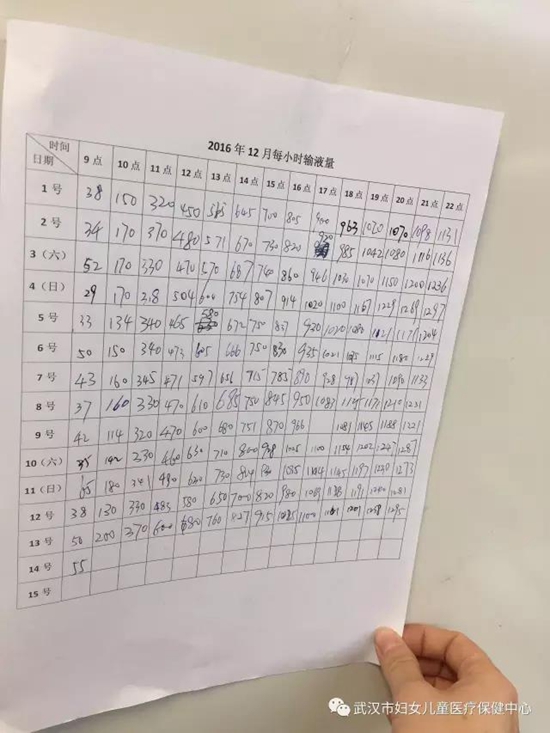 2016 年 12 月每小时输液量
时间 日期 9 点 10 点 11 点 12 点 13 点 14 点 15 点 16 点 17 点 18 点 19 点 20 点 21 点 22 点
1 号 38 150 320 450 565 605 700 805 900 963 1020 1070 1098 1131
2 号 34 170 370 480 571 670 730 820 920 985 1042 1080 1116 1136
3 (六) 52 170 330 470 570 687 740 860 946 1030 1070 1150 1200 1236
4 (日) 29 170 504 604 754 807 914 1020 1100 1167 1229 1269 1297
5 号 33 134 340 465 580 672 750 857 920 1020 1171 1204
6 号 50 150 340 473 605 666 750 830 935 1021 1115 1180
7 号 43 160 345 471 597 656 715 785 890 928 987 1037 1090 1133
8 号 37 160 330 470 610 685 750 845 950 1087 1171 1210
9 号 42 114 320 470 600 680 751 870 966 1081 1145 1188 1221
10 (六) 35 142 230 460 630 710 800 1025 1100 1154 1202 1247 1287
11 (日) 65 180 490 620 730 1145 1197 1230 1273
12 号 38 130 330 485 580 650 700 820 980 1191
13 号 50 200 370 600 680 760 827 915 1100 1201 1258 1295
14 号 55
15 号
武汉市妇女儿童医疗保健中心